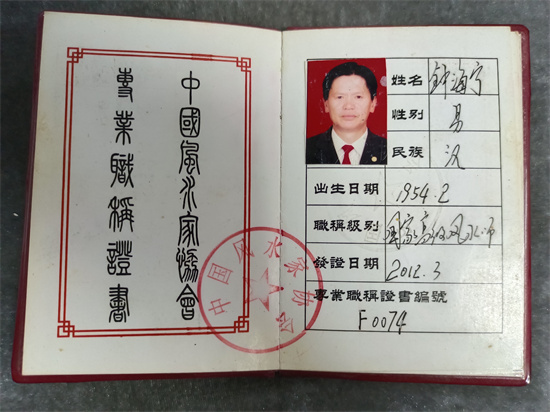 中國風水家協會
專業職稱證書
中国风水家协会
姓名 钟海宁
性別 男
民族 汉
出生日期 1954.2
職稱級別 国家高级风水师
發證日期 2012.3
專業職稱證書編號
F0074